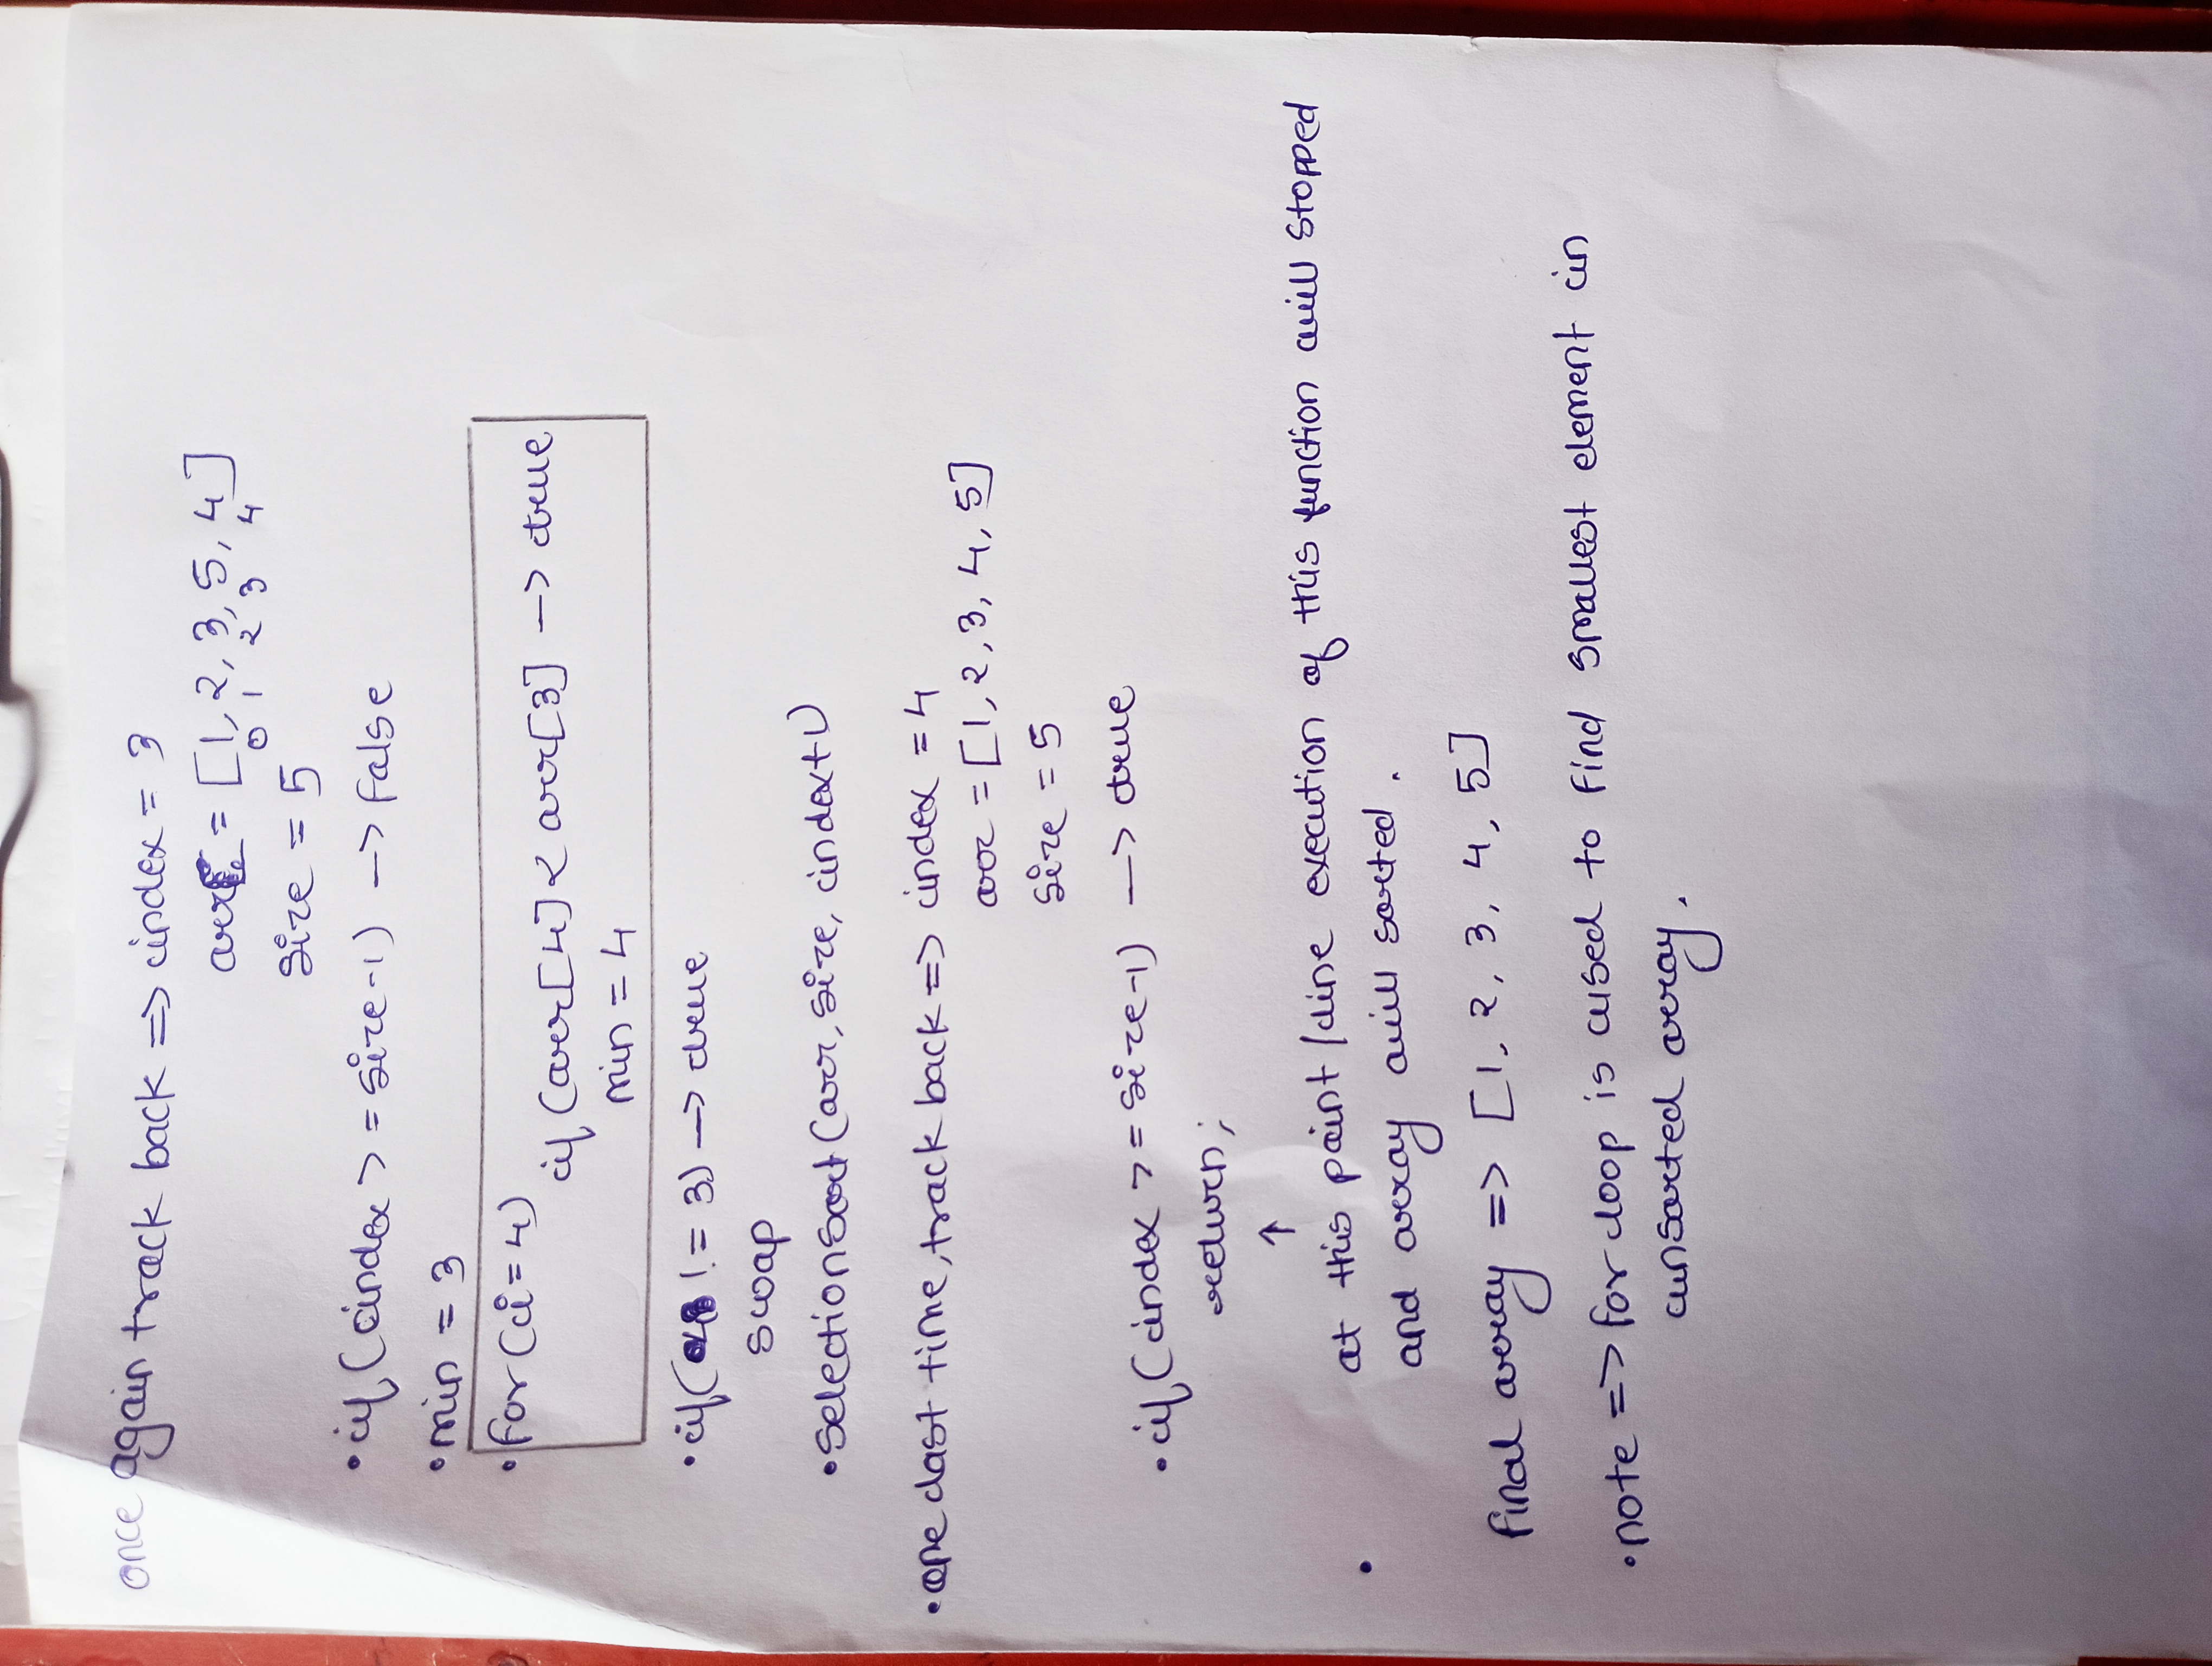 once again track back => index = 3
arr = [1, 2, 3, 5, 4]
0 1 2 3 4
size = 5
• if (index >= size-1) -> false
• min = 3
• for (i = 4)
if (arr[4] < arr[3] -> true
min = 4
• if ( != 3) -> true
swap
• selectionSort (arr, size, index+1)
• one last time, track back => index = 4
arr = [1, 2, 3, 4, 5]
size = 5
• if (index >= size-1) -> true
return;
↑
• at this point / line execution of this function will stopped
and array will sorted.
final array => [1, 2, 3, 4, 5]
• note => for loop is used to find smallest element in
unsorted array.